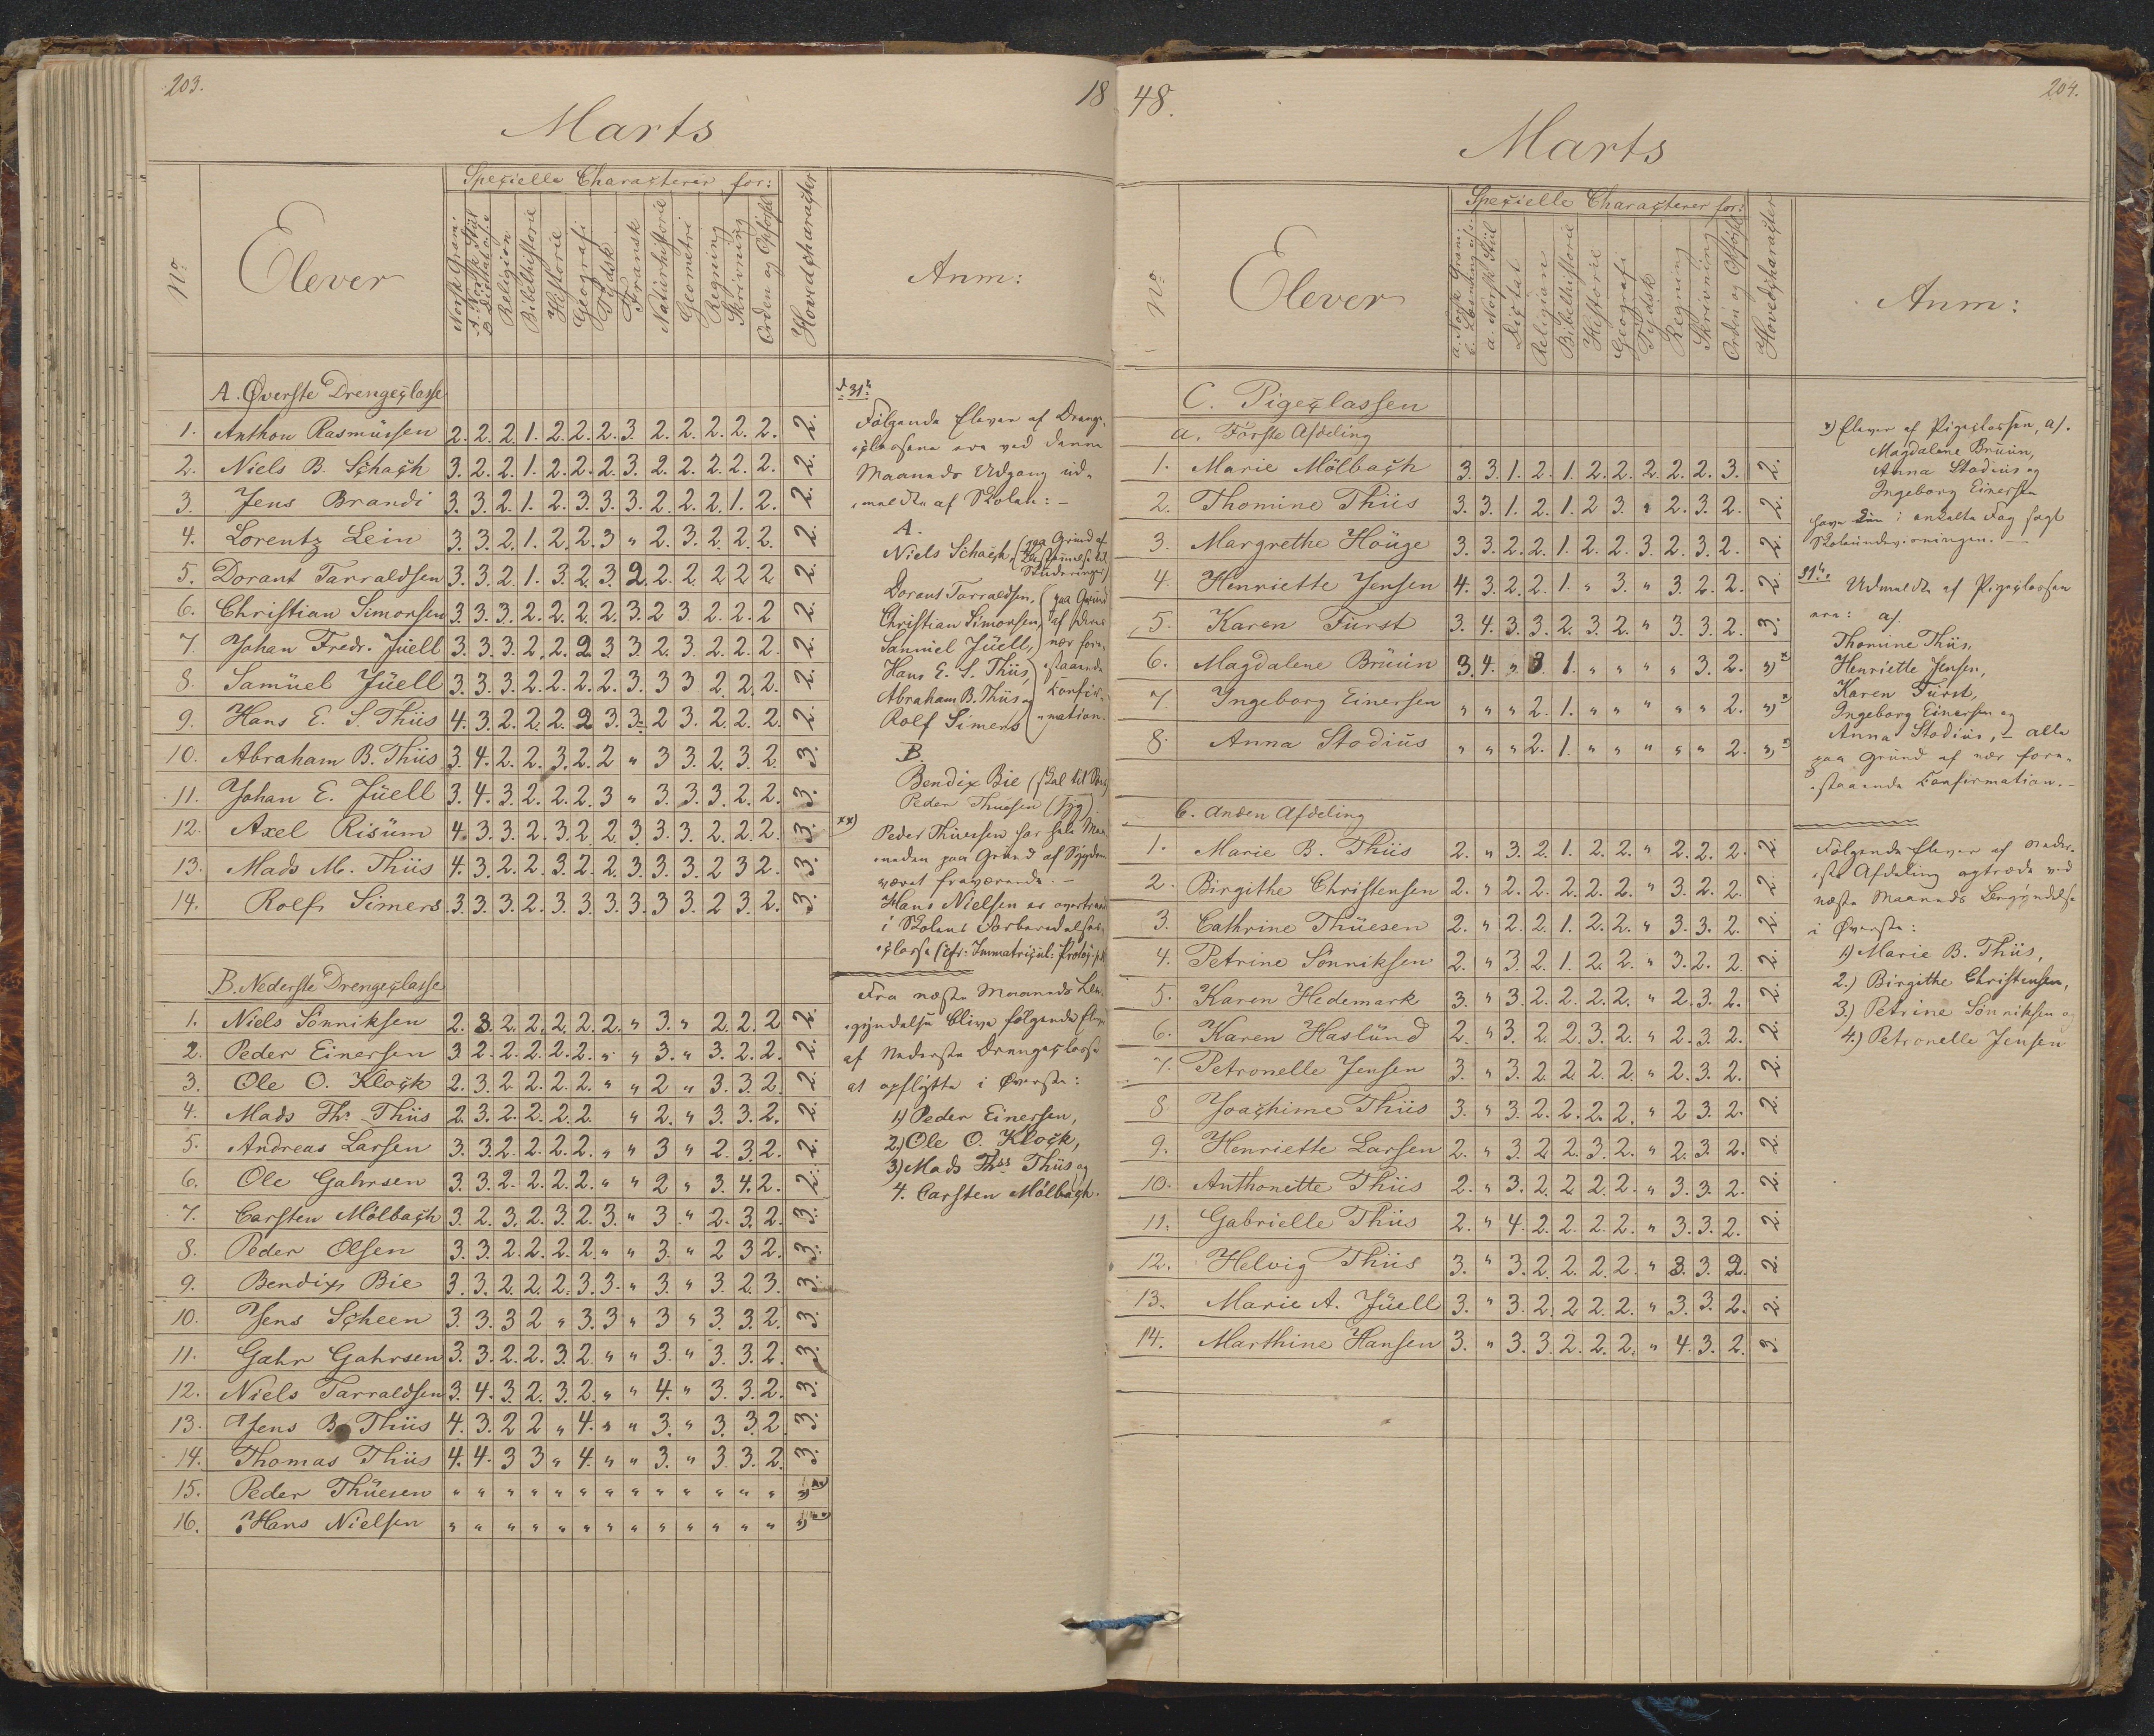 203.
18
Marts
No
Elever
Specielle Characterer for:
Norsk Gram:
A. Norsk Stiil
B. Dictat
Religion
Bibelhistorie
Historie
Geografi
Tydsk
Fransk
Naturhistorie
Geometri
Regning
Skrivning
Orden og Opførsel
Hovedcharacter
Anm:
A. Øverste Drengeclasse
1. Anthon Rasmüssen 2. 2. 2. 1. 2. 2. 2. 3. 2. 2. 2. 2. 2. 2.
2. Niels B. Schach 3. 2. 2. 1. 2. 2. 2. 3. 2. 2. 2. 2. 2. 2.
3. Jens Brandi 3. 3. 2. 1. 2. 3. 3. 3. 2. 2. 2. 1. 2. 2.
4. Lorentz Lein 3. 3. 2. 1. 2. 2. 3 " 2. 3. 2. 2. 2. 2.
5. Dorant Tarraldsen 3. 3. 2. 1. 3. 2. 3. 2. 2. 2. 2. 2. 2. 2.
6. Christian Simonsen 3. 3. 3. 2. 2. 2. 2. 3. 2. 3. 2. 2. 2 2.
7. Johan Fredr. Jüell 3. 3. 3. 2. 2. 2. 3 3. 2. 3. 2. 2. 2. 2.
8. Samüel Jüell 3. 3. 3. 2. 2. 2. 2. 3. 3 3 2. 2. 2. 2.
9. Hans E. S. Thiis 4. 3. 2. 2. 2. 2 3. 3. 2 3. 2. 2. 2. 2.
10. Abraham B. Thiis 3. 4. 2. 2. 3. 2. 2 " 3 3. 2. 3. 2. 3.
11. Johan E. Jüell 3. 4. 3. 2. 2. 2. 3 " 3. 3. 3. 2. 2. 3.
12. Axel Risüm 4. 3. 3. 2. 3. 2. 2. 3. 3. 3. 2. 2. 2. 3.
13. Mads M. Thiis 4. 3. 2. 2. 3. 2. 2. 3. 3. 3. 2 3 2. 3.
14. Rolf Simers 3. 3. 3. 2. 3. 3. 3. 3. 3. 3. 2 3. 2. 3.
B. Nederste Drengeclasse
1. Niels Sönniksen 2. 3. 2. 2. 2. 2. 2. " 3. " 2. 2. 2 2.
2. Peder Einersen 3. 2. 2. 2. 2. 2. " " 3. " 3. 2. 2. 2.
3. Ole O. Klock 2. 3. 2. 2. 2. 2. " " 2 " 3. 3. 2. 2.
4. Mads Ths. Thiis 2. 3. 2. 2. 2. 2. " 2. " 3. 3. 2. 2.
5. Andreas Larsen 3. 3. 2. 2. 2. 2. " " 3 " 2. 3. 2. 2.
6. Ole Gahrsen 3. 3. 2. 2. 2. 2. " " 2 " 3. 4. 2. 2.
7. Carsten Mölbach 3. 2. 3. 2. 3. 2. 3. " 3 " 2. 3. 2. 3.
8. Peder Olsen 3. 3. 2. 2. 2. 2. " " 3. " 2 3 2. 3.
9. Bendix Bie 3. 3. 2. 2. 2. 3. 3. " 3. " 3. 2. 3. 3.
10. Jens Scheen 3. 3. 3 2 " 3. 3 " 3 " 3. 3. 2. 3.
11. Gahr Gahrsen 3. 3. 2. 2. 3. 2. " " 3. " 3. 3. 2. 3.
12. Niels Tarraldsen 3. 4. 3. 2. 3. 2. " " 4. " 3. 3. 2. 3.
13. Jens B. Thiis 4. 3. 2 2 " 4. " " 3. " 3. 3. 2. 3.
14. Thomas Thiis 4. 4. 3 3 " 4. " " 3. " 3. 3. 2. 3.
15. Peder Thüesen " " " " " " " " " " " " "
16. Hans Nielsen " " " " " " " " " " " " "
31te
Følgende Elever af Drenge-
classerne ere ved denne
Maaneds Udgang ud-
meldte af Skolen: —
A.
Niels Schach, (paa Grund af
Dorant Tarraldsen,
Christian Simonsen,
Samuel Jüell,
Hans E. S. Thiis,
Abraham B. Thiis og
Rolf Simers
(paa Grund
af deres
nær fore-
staaende
Confir-
mation.
B.
Bendix Bie (skal til Søes)
Peder Thüesen (syg)
xx)
Peder Thüesen har hele Maa-
neden paa Grund af Sygdom
været fraværende. —
Hans Nielsen er overtraadt
i Skolens Forberedelses-
classe (cfr: Immatricul: Protoc.
Fra næste Maaneds Be-
gyndelse blive følgende Elever
af Nederste Drengeclasse
at opflytte i Øverste:
1) Peder Einersen,
2) Ole O. Klock,
3) Mads Ths Thiis og
4. Carsten Mölbach.
48.
204.
Marts
No
Elever
Specielle Characterer for:
a. Norsk Gram:
a. Norsk Stiil
Dictat
Religion
Bibelhistorie
Historie
Geografi
Tydsk
Regning
Skrivning
Orden og Opførsel
Hovedcharacter
Anm:
C. Pigeclassen
a. Första Afdeling
1. Marie Mölbach 3. 3. 1. 2. 1. 2. 2. 2. 2. 2. 3. 2.
2. Thomine Thiis 3. 3. 1. 2. 1. 2 3. " 2. 3. 2. 2.
3. Margrethe Houge 3. 3. 2. 2. 1. 2. 2. 3. 2. 3. 2. 2.
4. Henriette Jensen 4. 3. 2. 2. 1. " 3. " 3. 2. 2. 2.
5. Karen Fürst 3. 4. 3. 3. 2. 3. 2. " 3. 3. 2. 3.
6. Magdalene Brüün 3. 4. " 3 1. " " " " 3. 2. ") x
7 Ingeborg Einersen " " " 2. 1. " " " " " 2. ") x
8. Anna Stodius " " " 2. 1. " " " " " 2. ") x
b. Anden Afdeling
1. Marie B. Thiis 2. " 3. 2. 1. 2. 2. " 2. 2. 2. 2.
2. Birgithe Christensen 2. " 2. 2. 2. 2. 2. " 3. 2. 2. 2.
3. Cathrine Thüesen 2. " 2. 2. 1. 2. 2. " 3. 3. 2. 2.
4. Petrine Sönniksen 2. " 3. 2. 1. 2. 2. " 3. 2. 2. 2.
5. Karen Hedemark 3. " 3. 2. 2. 2. 2. " 2. 3. 2. 2.
6. Karen Haslünd 2. " 3. 2. 2. 3. 2. " 2. 3. 2. 2.
7. Petronelle Jensen 3. " 3. 2. 2. 2. 2. " 2. 3. 2. 2.
8 Joachime Thiis 3. " 3. 2. 2. 2. 2. " 2 3. 2. 2.
9. Henriette Larsen 2. " 3. 2. 2. 3. 2. " 2. 3. 2. 2.
10. Anthonette Thiis 2. " 3. 2. 2. 2. 2. " 3. 3. 2. 2.
11. Gabrielle Thiis 2. " 4. 2. 2. 2. 2. " 3. 3. 2. 2.
12. Helvig Thiis 3. " 3. 2. 2. 2. 2. " 3. 3. 2. 2.
13. Marie A. Jüell 3. " 3. 2. 2. 2. 2. " 3. 3. 2. 2.
14. Marthine Hansen 3. " 3. 3. 2. 2. 2. " 4. 3. 2. 3.
x) Elever af Pigeclassen, a).
Magdalene Brüün,
Anna Stodius og
Ingeborg Einersen
have i enkelte Fag søgt
Skoleundervisningen. —
31te
Udmeldte af Pigeclassen
ere: a)
Thomine Thiis,
Henriette Jensen,
Karen Fürst,
Ingeborg Einersen og
Anna Stodius, — alle
paa Grund af nær fore-
staaende Confirmation. —
Følgende Elever af Neder-
ste Afdeling optræde ved
næste Maaneds Begyndelse
i Øverste:
1) Marie B. Thiis,
2.) Birgithe Christensen,
3.) Petrine Sönniksen og
4.) Petronelle Jensen